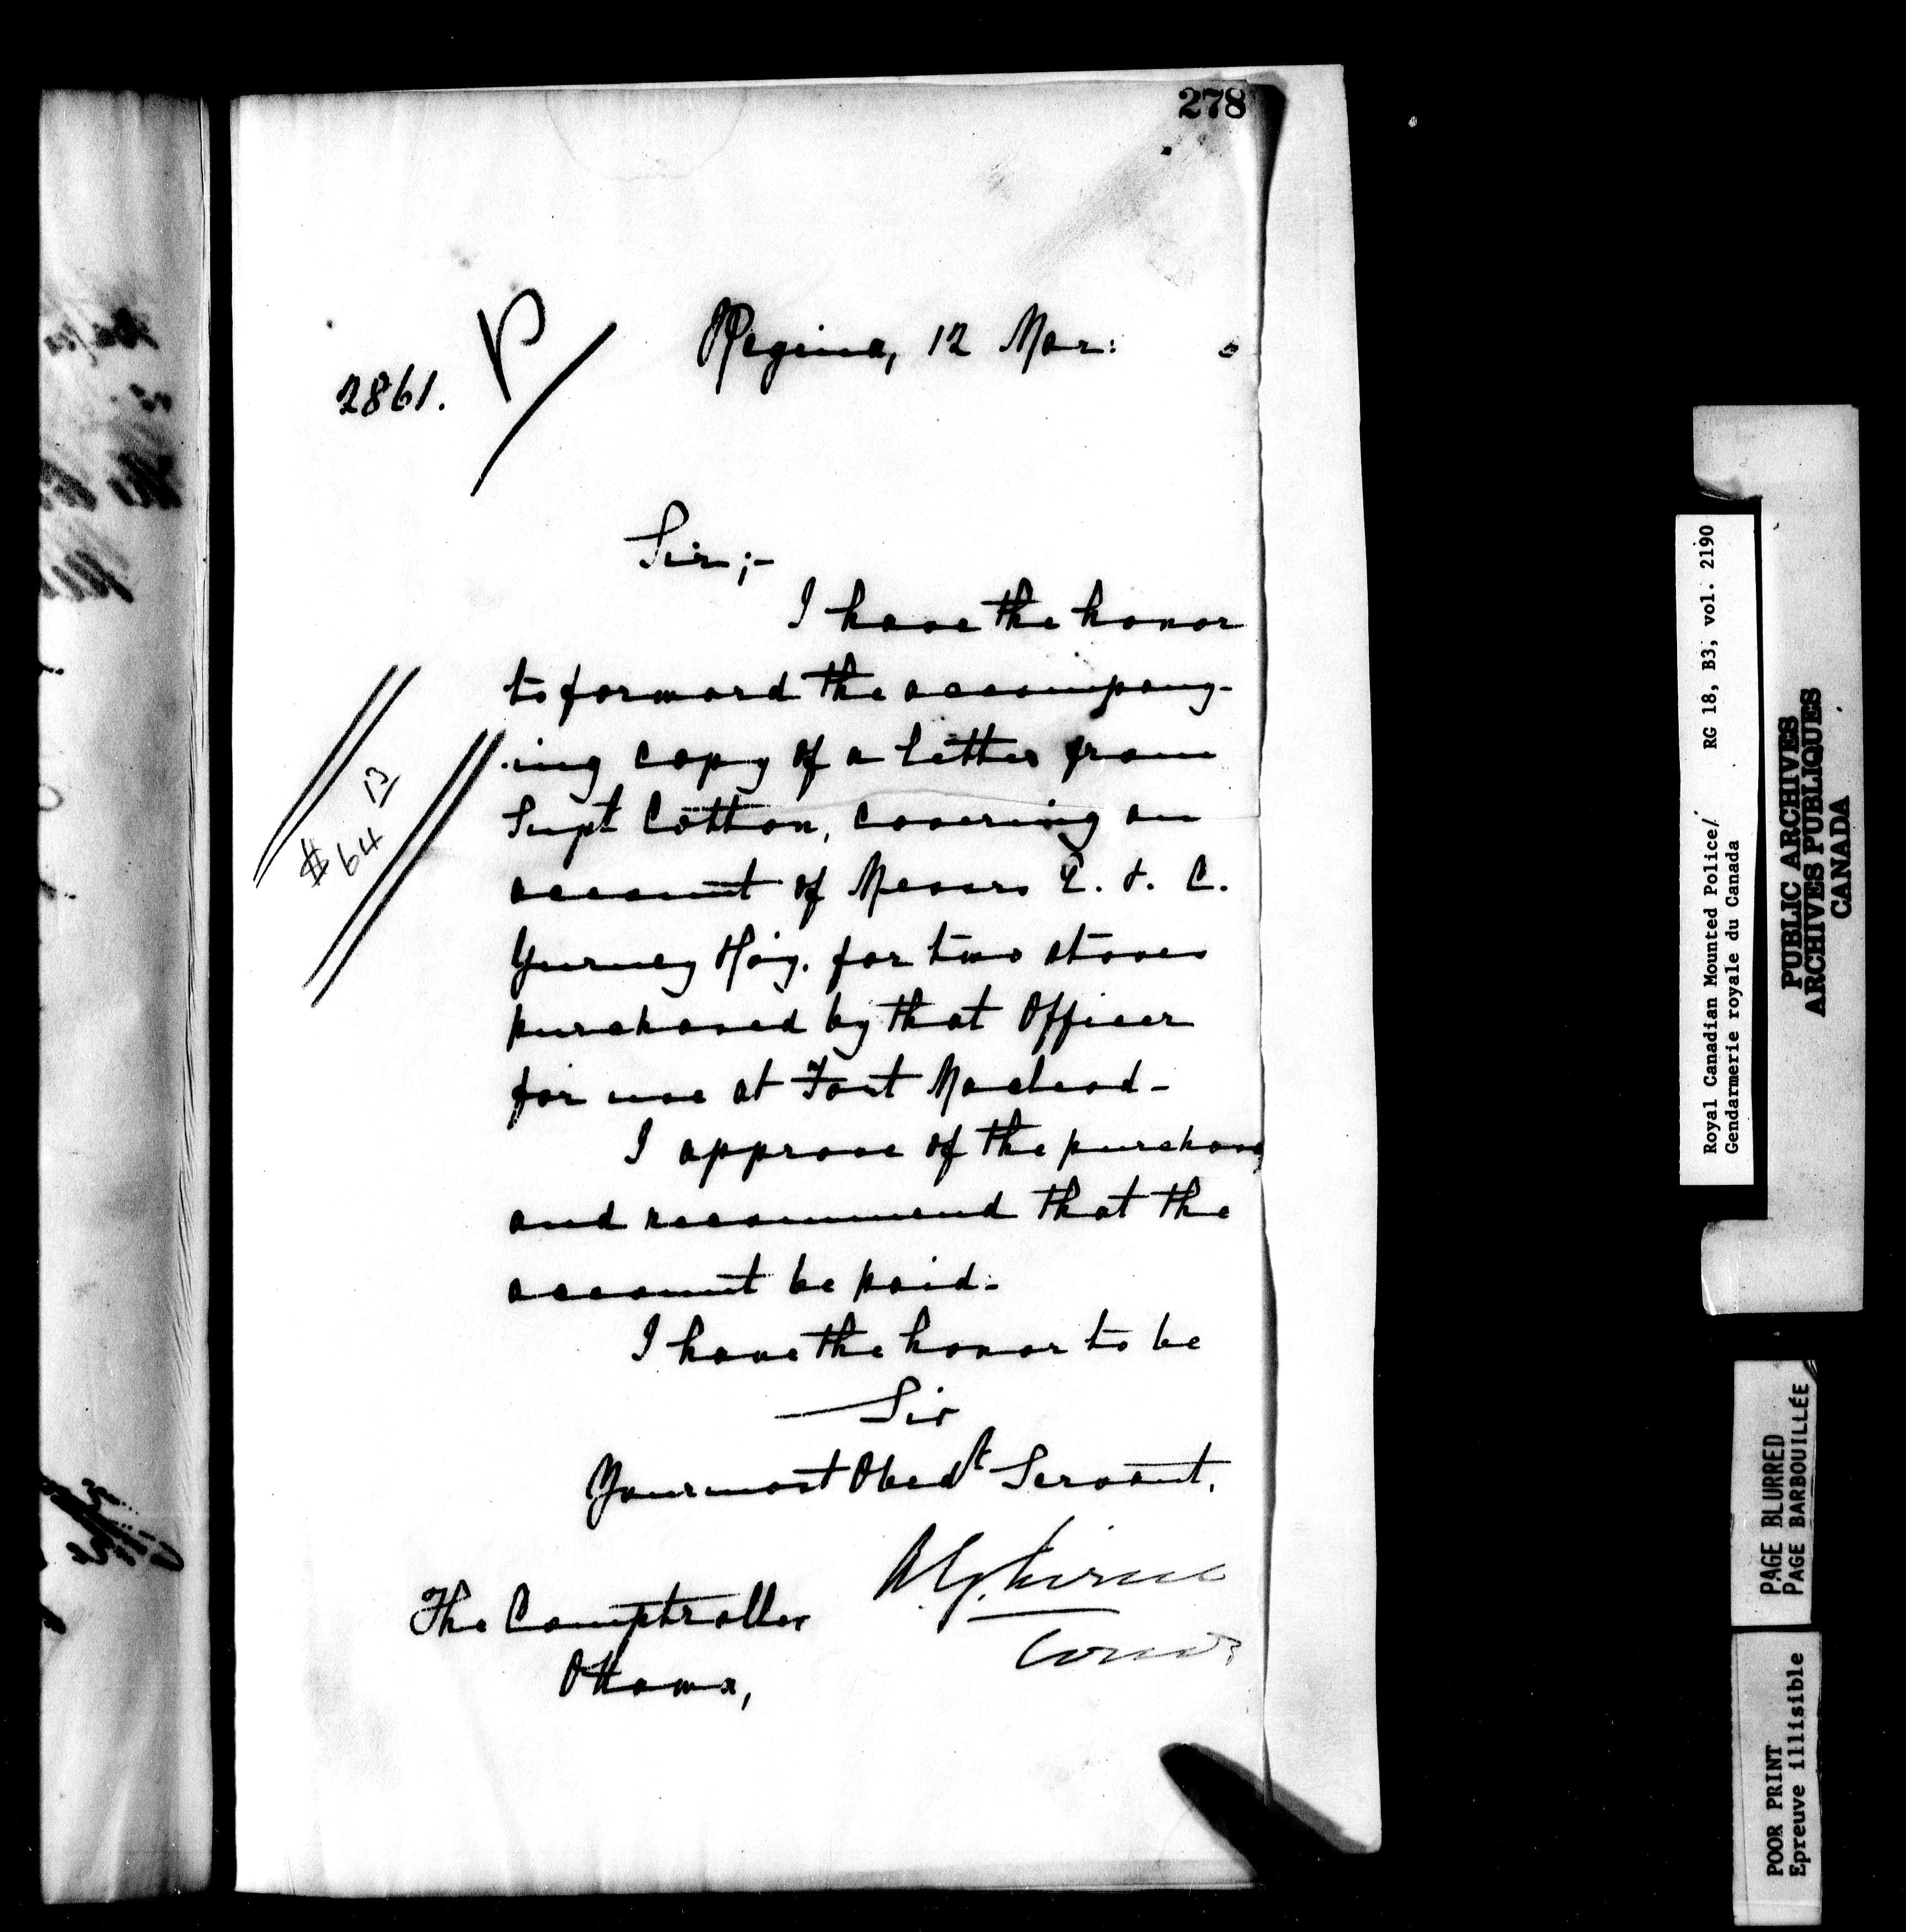 278
Regina, 12 Mar:
2861. P
Sir;-
I have the honor
to forward the accompany-
ing copy of a letter from
Supt Cotton, covering an
account of Messrs E. & C.
Gurney for two stoves
purchased by that Officer
for use at Fort Macleod-
$64 13
I approve of the purchase
and recommend that the
account be paid-
I have the honor to be
Sir
Your most Obedt Servant,
Comr
The Comptroller
Ottawa,
Royal Canadian Mounted Police/ RG 18, B3, vol. 2190
Gendarmerie royale du Canada
PUBLIC ARCHIVES
ARCHIVES PUBLIQUES
CANADA
PAGE BLURRED
PAGE BARBOUILLÉE
POOR PRINT
Epreuve illisible